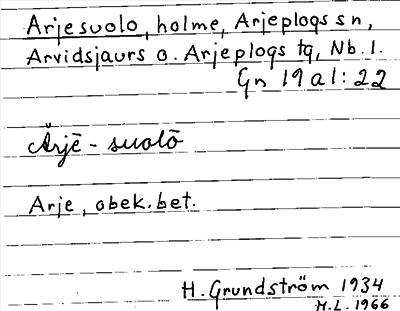 Arjesuolo, holme, Arjeplogs sn,
Arvidsjaurs o. Arjeplogs tg, Nb. l.
Gn 19 a1: 22
Ārjē - suolō
Arje, obek. bet.
H. Grundström 1934
H.L. 1966